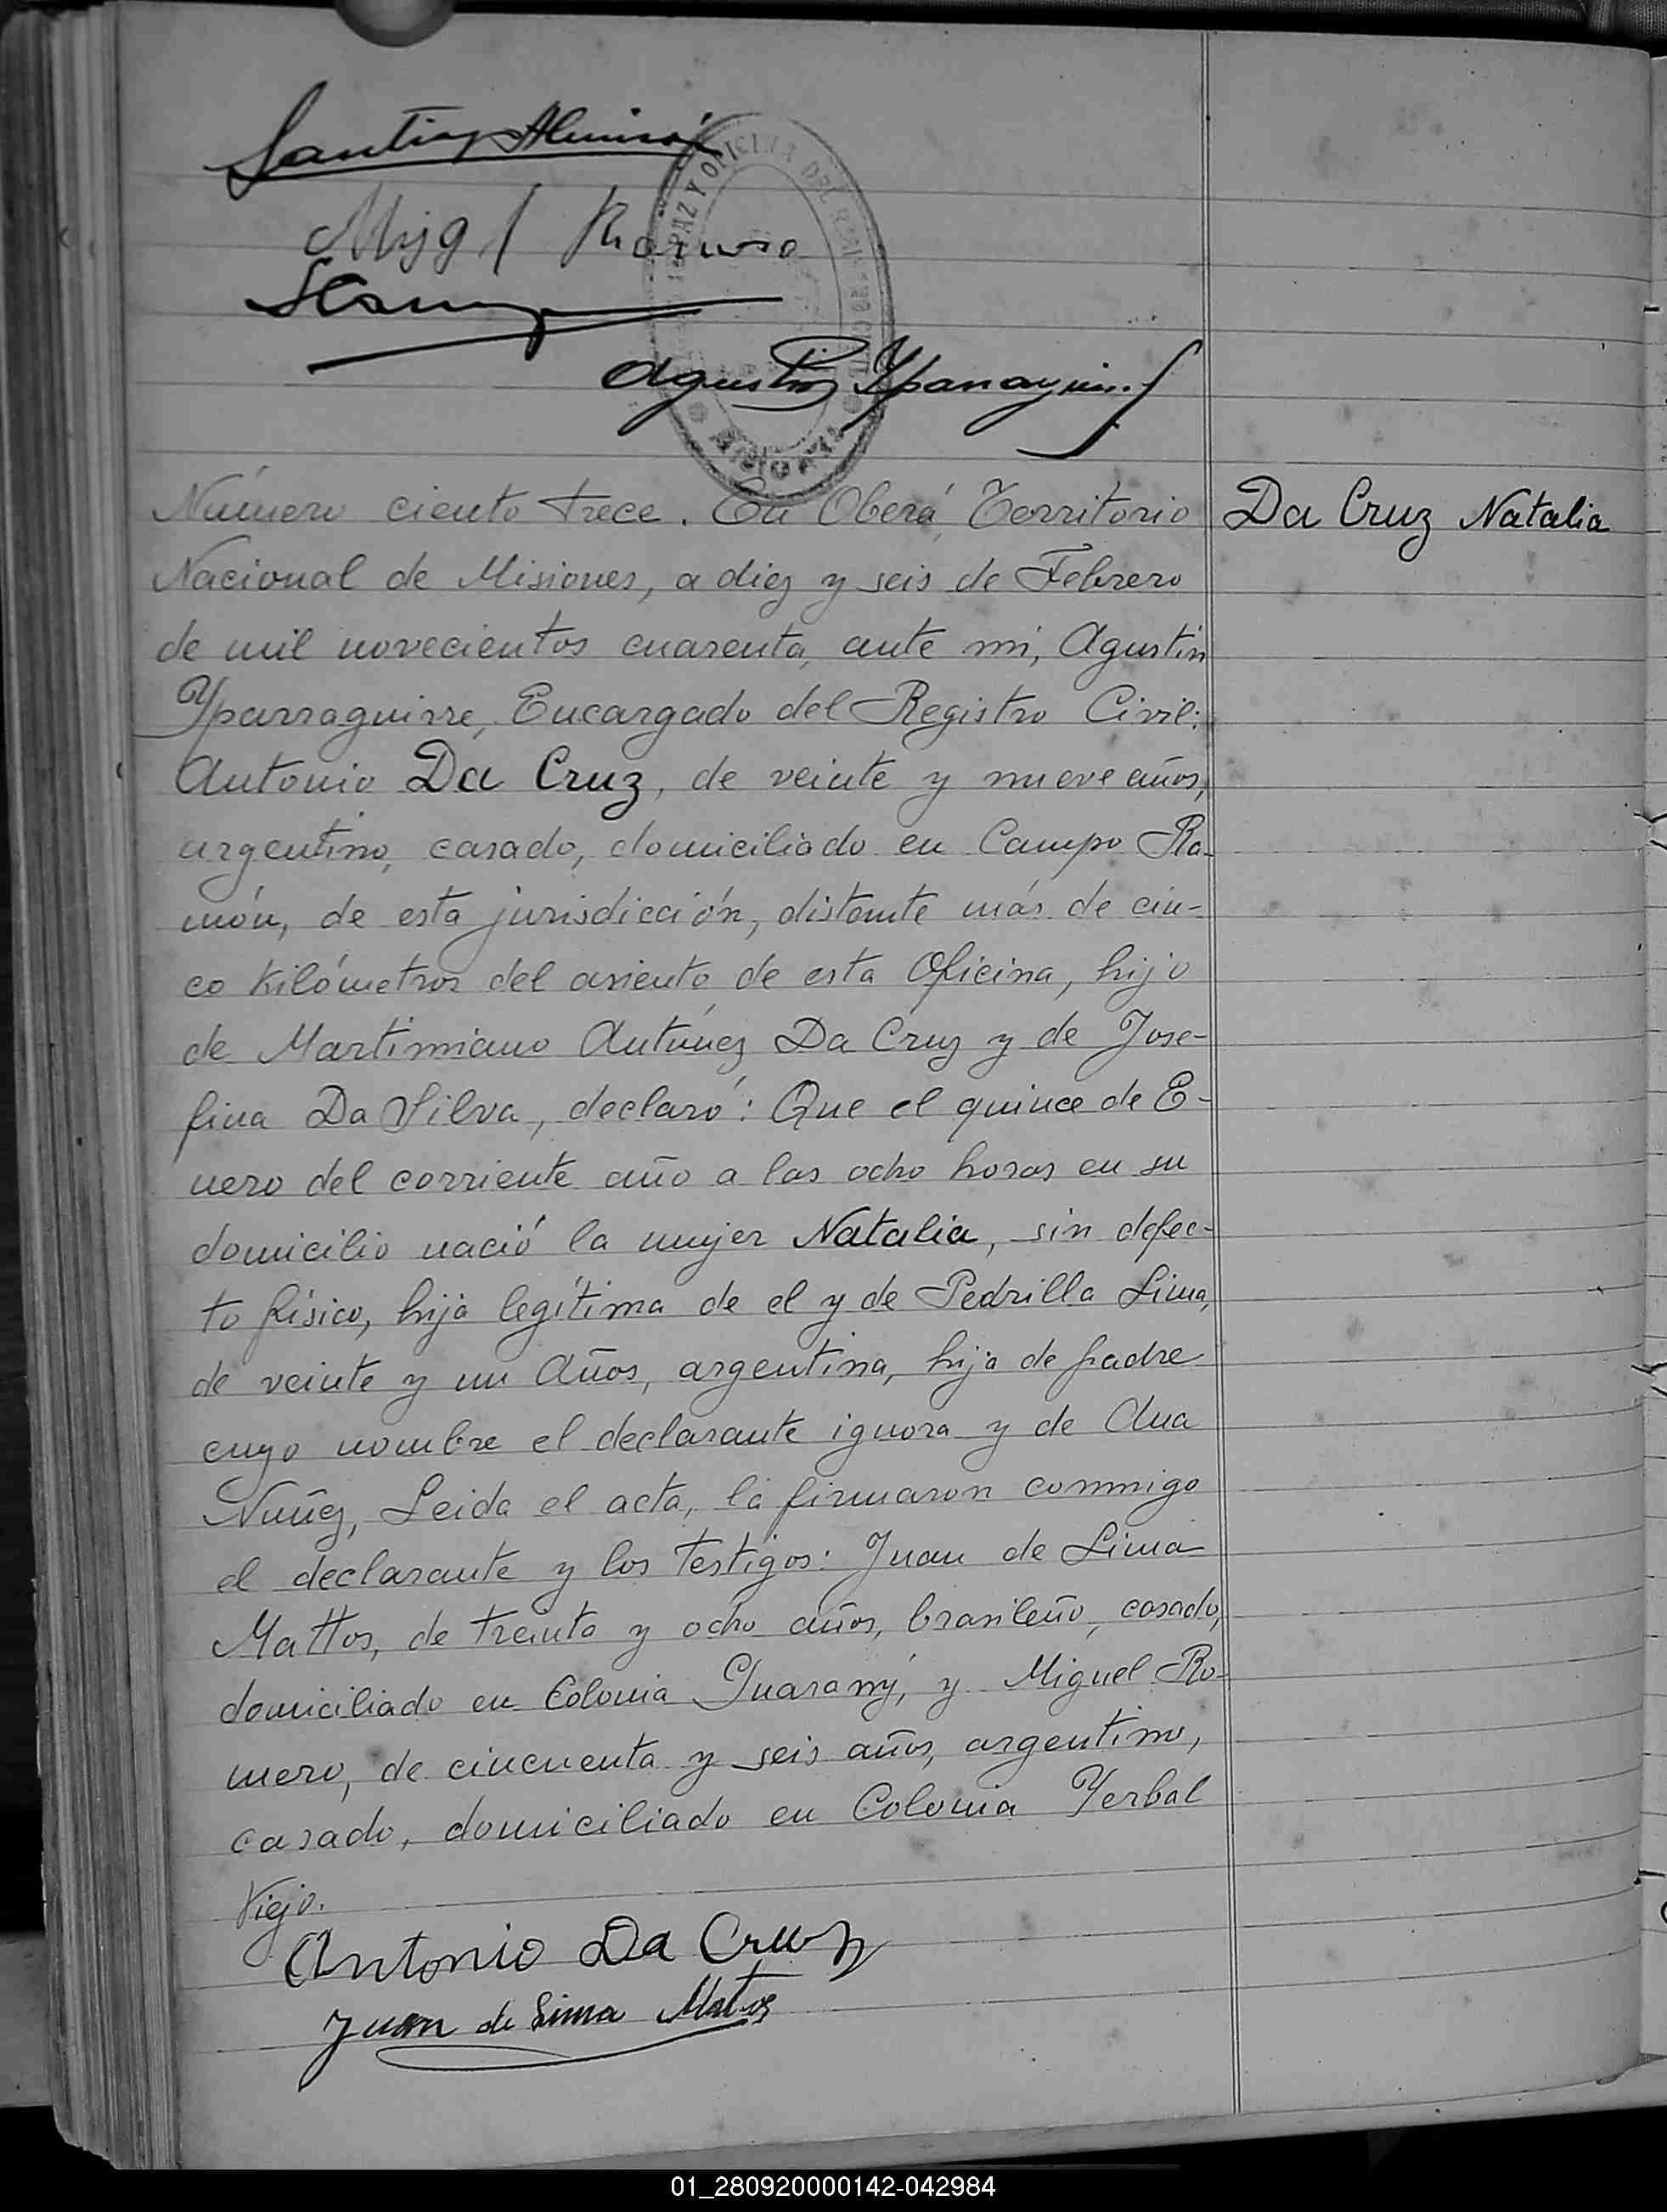 Agustín Yparraguirre
Número ciento trece. En Oberá, Territorio
Da Cruz Natalia
Nacional de Misiones, a diez y seis de Febrero
de mil novecientos cuarenta, ante mi, Agustín
Yparraguirre, Encargado del Registro Civil:
Antonio Da Cruz, de veinte y nueve años,
argentino, casado, domiciliado en Campo Ra-
món, de esta jurisdicción, distante más de cin-
co kilómetros del asiento de esta Oficina, hijo
de Martimiano Antúnez Da Cruz y de Jose-
fina Da Silva, declaró: Que el quince de E-
nero del corriente año a las ocho horas en su
domicilio nació la mujer Natalia, sin defec-
to físico, hija legítima de el y de Pedrilla Lima,
de veinte y un años, argentina, hija de padre
cuyo nombre el declarante ignora y de Ana
Nuñez, Leida el acta, la firmaron conmigo
el declarante y los testigos: Juan de Lima
Mattos, de treinta y ocho años, brasileño, casado,
domiciliado en Colonia Guarany, y Miguel Ro-
mero, de cincuenta y seis años, argentino,
casado, domiciliado en Colonia Yerbal
Viejo.
Antonio Da Cruz
Juan de Lima Matos
01_280920000142-042984